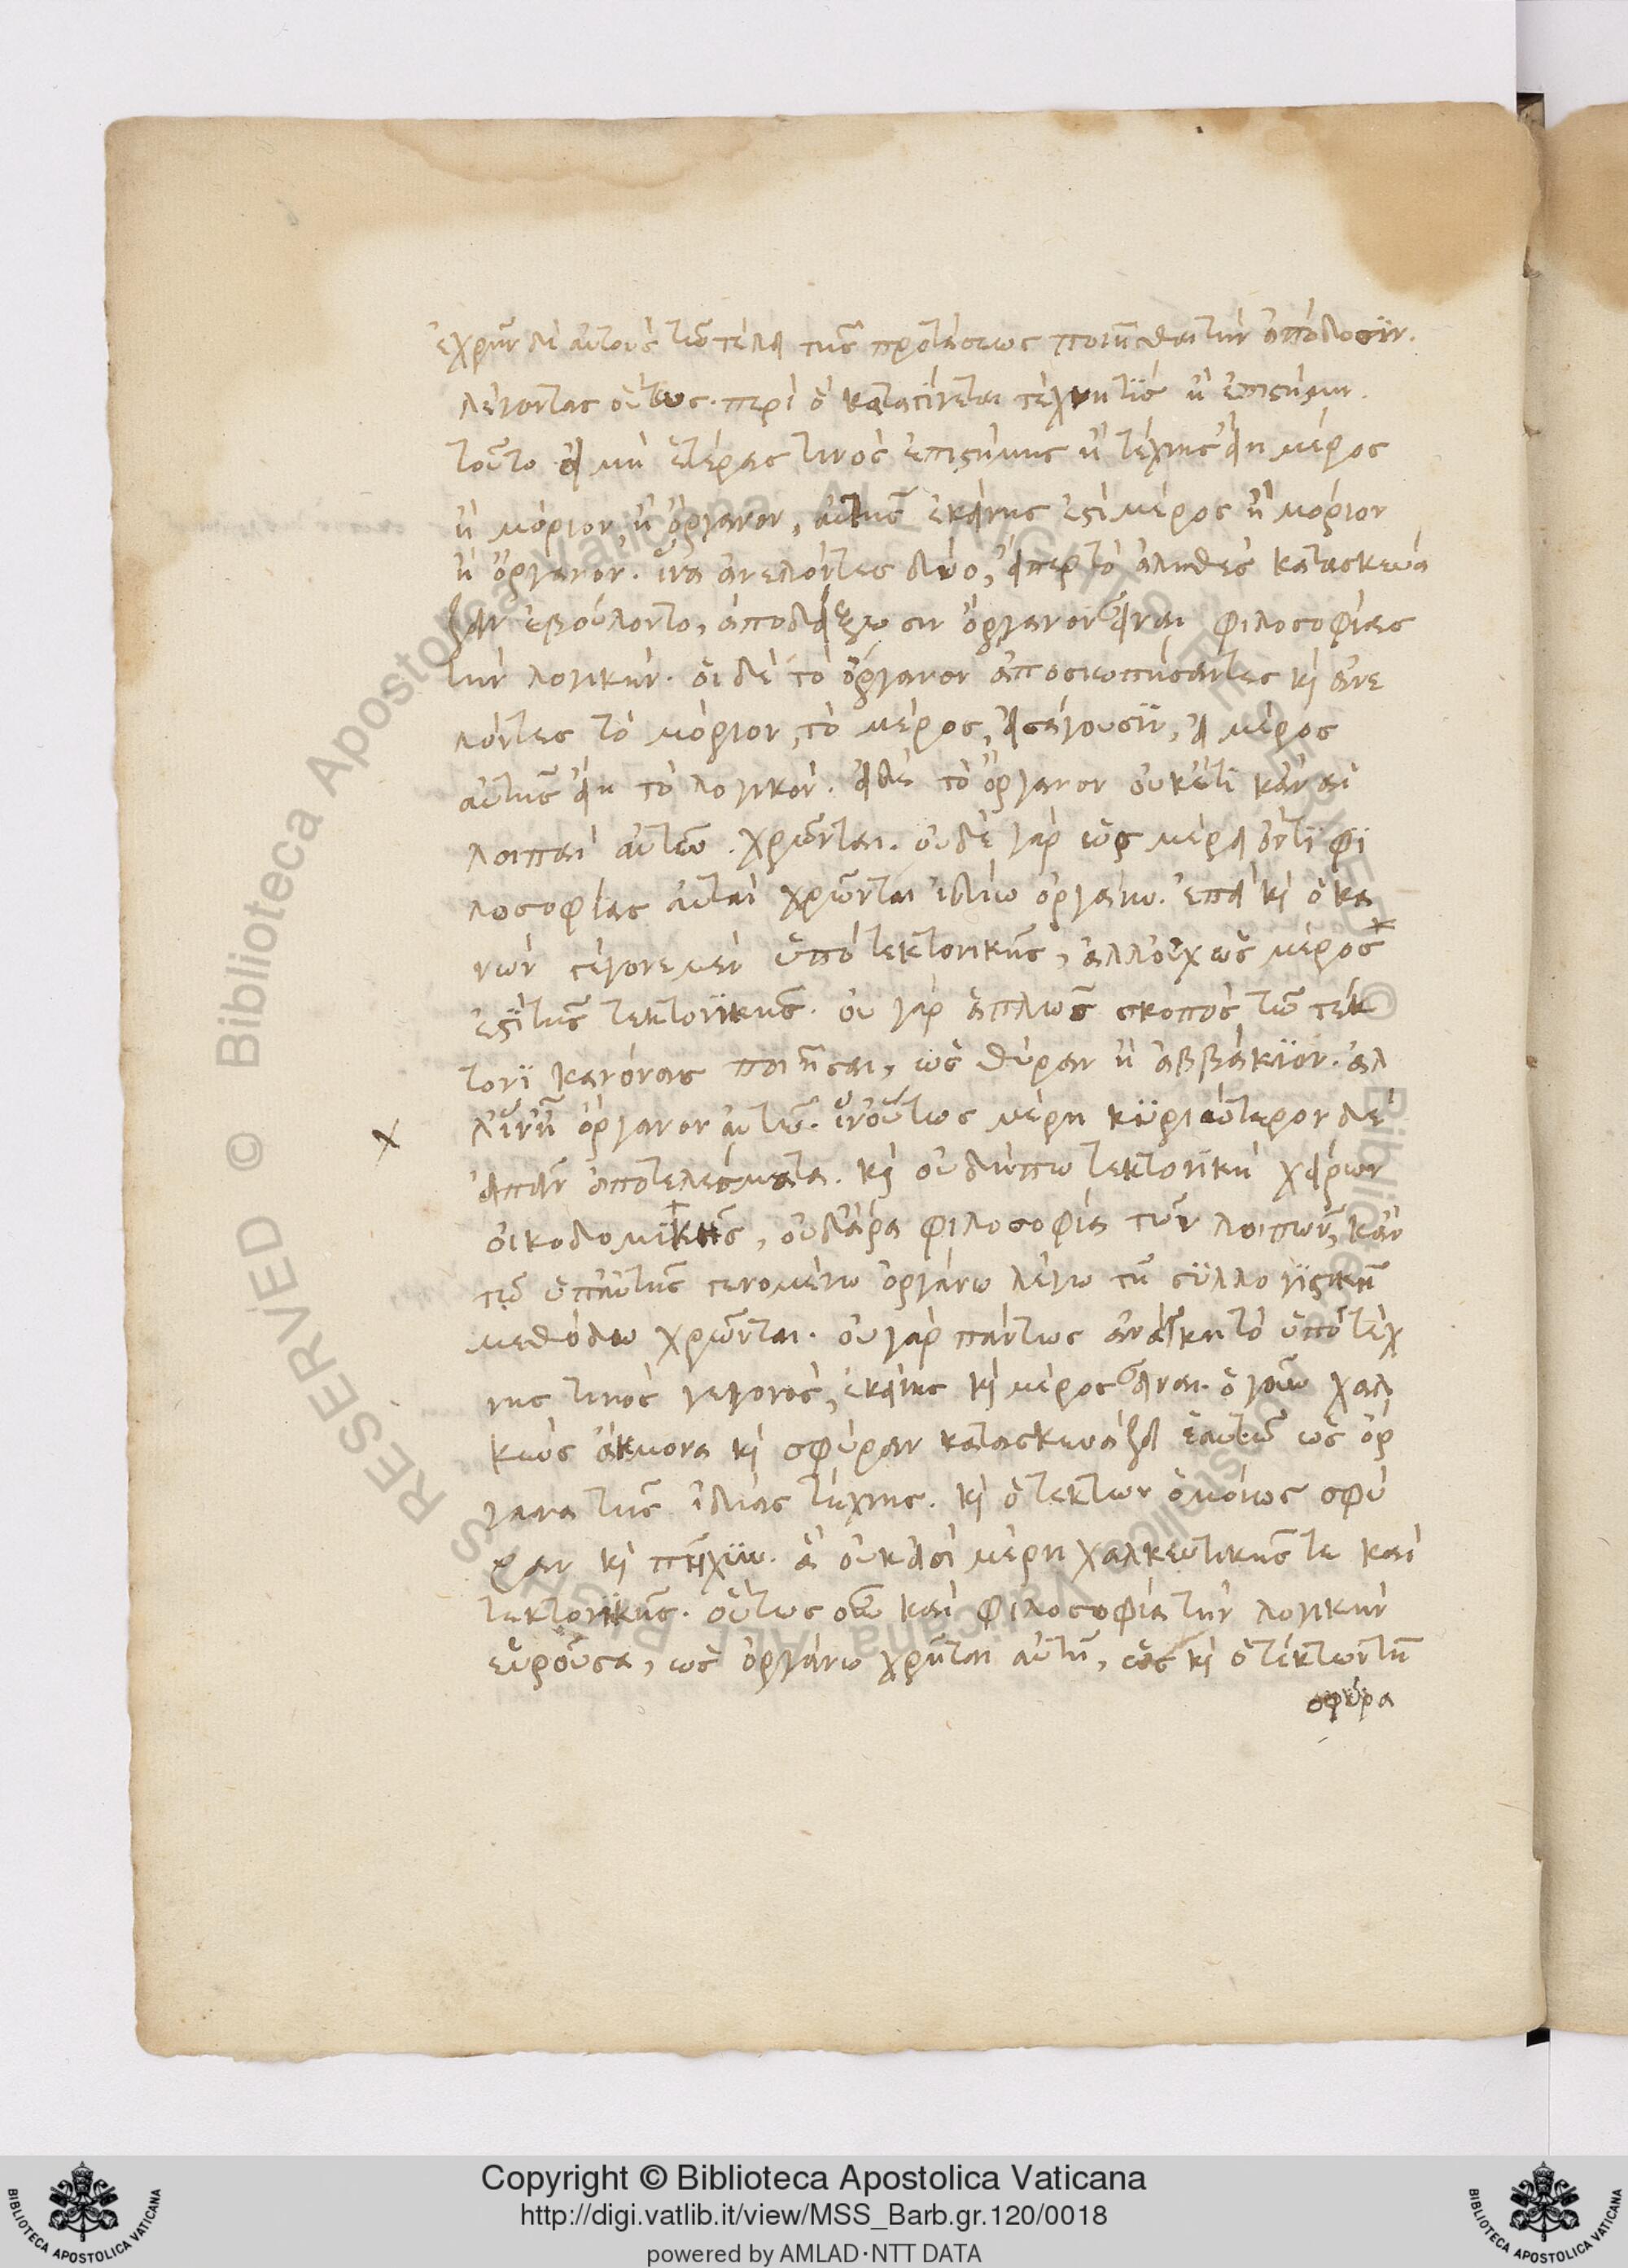 ἐχρῆν δὲ αὐτοὺς τῶ τέλει τῆς προτάσεως ποιῆσθαι τὴν ἀπόδοσϊν.
λέγοντας οὕτως. περὶ ὃ καταγίνεται τέχνη τϊς ἢ ἐπιστήμη.
τοῦτο εἰ μὴ ἑτέρας τινὸς ἐπιστήμης ἢ τέχνης εἴη μέρος
ἢ μόριον, ἢ ὄργανον, αὐτῆς ἐκείνης ἐστὶ μέρος ἢ μόριον
ἢ ὄργανον. ἵνα ἀνελόντες δύο, ὅπερ τὸ ἀληθὲς κατασκευά
ζειν ἐβούλοντο, ἀποδείξωσιν ὄργανον εἶναι φιλοσοφίας
τὴν λογικήν. οἱ δὲ τὸ ὄργανον ἀποσιωπήσαντες κὶ ἀνε
λόντες τὸ μόριον, τὸ μέρος, εἰσάγουσϊν, εἰ μέρος
αὐτῆς εἴη τὸ λογικόν. εἰ δὲ τὸ ὄργανον οὐκέτι κἂν αἱ
λοιπαὶ αὐτῶ χρῶνται. οὐδὲ γὰρ ὡς μέρει ὄντϊ φϊ
λοσοφίας αὐταὶ χρῶνται ἰδίω ὀργάνω. ἐπεὶ κὶ ὁ κα
νὼν γέγονε μὲν ὑπὸ τεκτονικῆς, ἀλλ' οὐχ ὡς μέρος
ἐστϊ τῆς τεκτονϊκῆς. οὐ γὰρ ἁπλῶς σκοπὸς τῶ τέκ
τονϊ κανόνας ποιῆσαι, ὡς θύραν ἢ ἀββάκϊον. ἀλ
λ' ἵν' ἦ ὄργανον αὐτῶ. ἵν' οὕτως μέρη κϋριώτερον δὲ
εἰπεῖν ἀποτελέσματα. κὶ οὐδήπω τεκτονϊκὴ χείρων
οἰκοδομϊκῆς, οὐδ' ἄρα φιλοσοφία τῶν λοιπῶν, κἂν
τῶ ὑπ' αὐτῆς γενομένω ὀργάνω λέγω τῆ σϋλλογϊστικῆ
μεθόδω χρῶνται. οὐ γὰρ πάντως ἀνάγκη τὸ ὑπὸ τέχ
νης τινὸς γεγονὸς, ἐκείνης κὶ μέρος εἶναι. ὁ γοῦν χαλ
κεὺς ἄκμονα κὶ σφύραν κατασκευάζει ἑαυτῶ ὡς ὄρ
γανα τῆς ἰδίας τέχνης. κὶ ὁ τέκτων ὁμοίως σφύ
ραν κὶ πῆχϋν. ἃ οὐκ εἰσὶ μέρη χαλκευτικῆς τε καὶ
τεκτονϊκῆς. οὕτως οὖν καὶ φιλοσοφία τὴν λογικὴν
εὑροῦσα, ὡς ὀργάνω χρῆται αὐτῆ, ὡς κὶ ὁ τέκτων τῆ
σφύρα
Copyright © Biblioteca Apostolica Vaticana
http://digi.vatlib.it/view/MSS_Barb.gr.120/0018
powered by AMLAD·NTT DATA